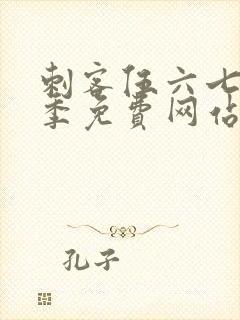 刺客伍六七
季免费网站
孔子